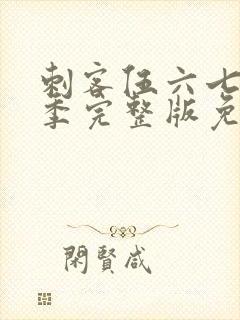 刺客伍六七
季完整版免
閑賢咸